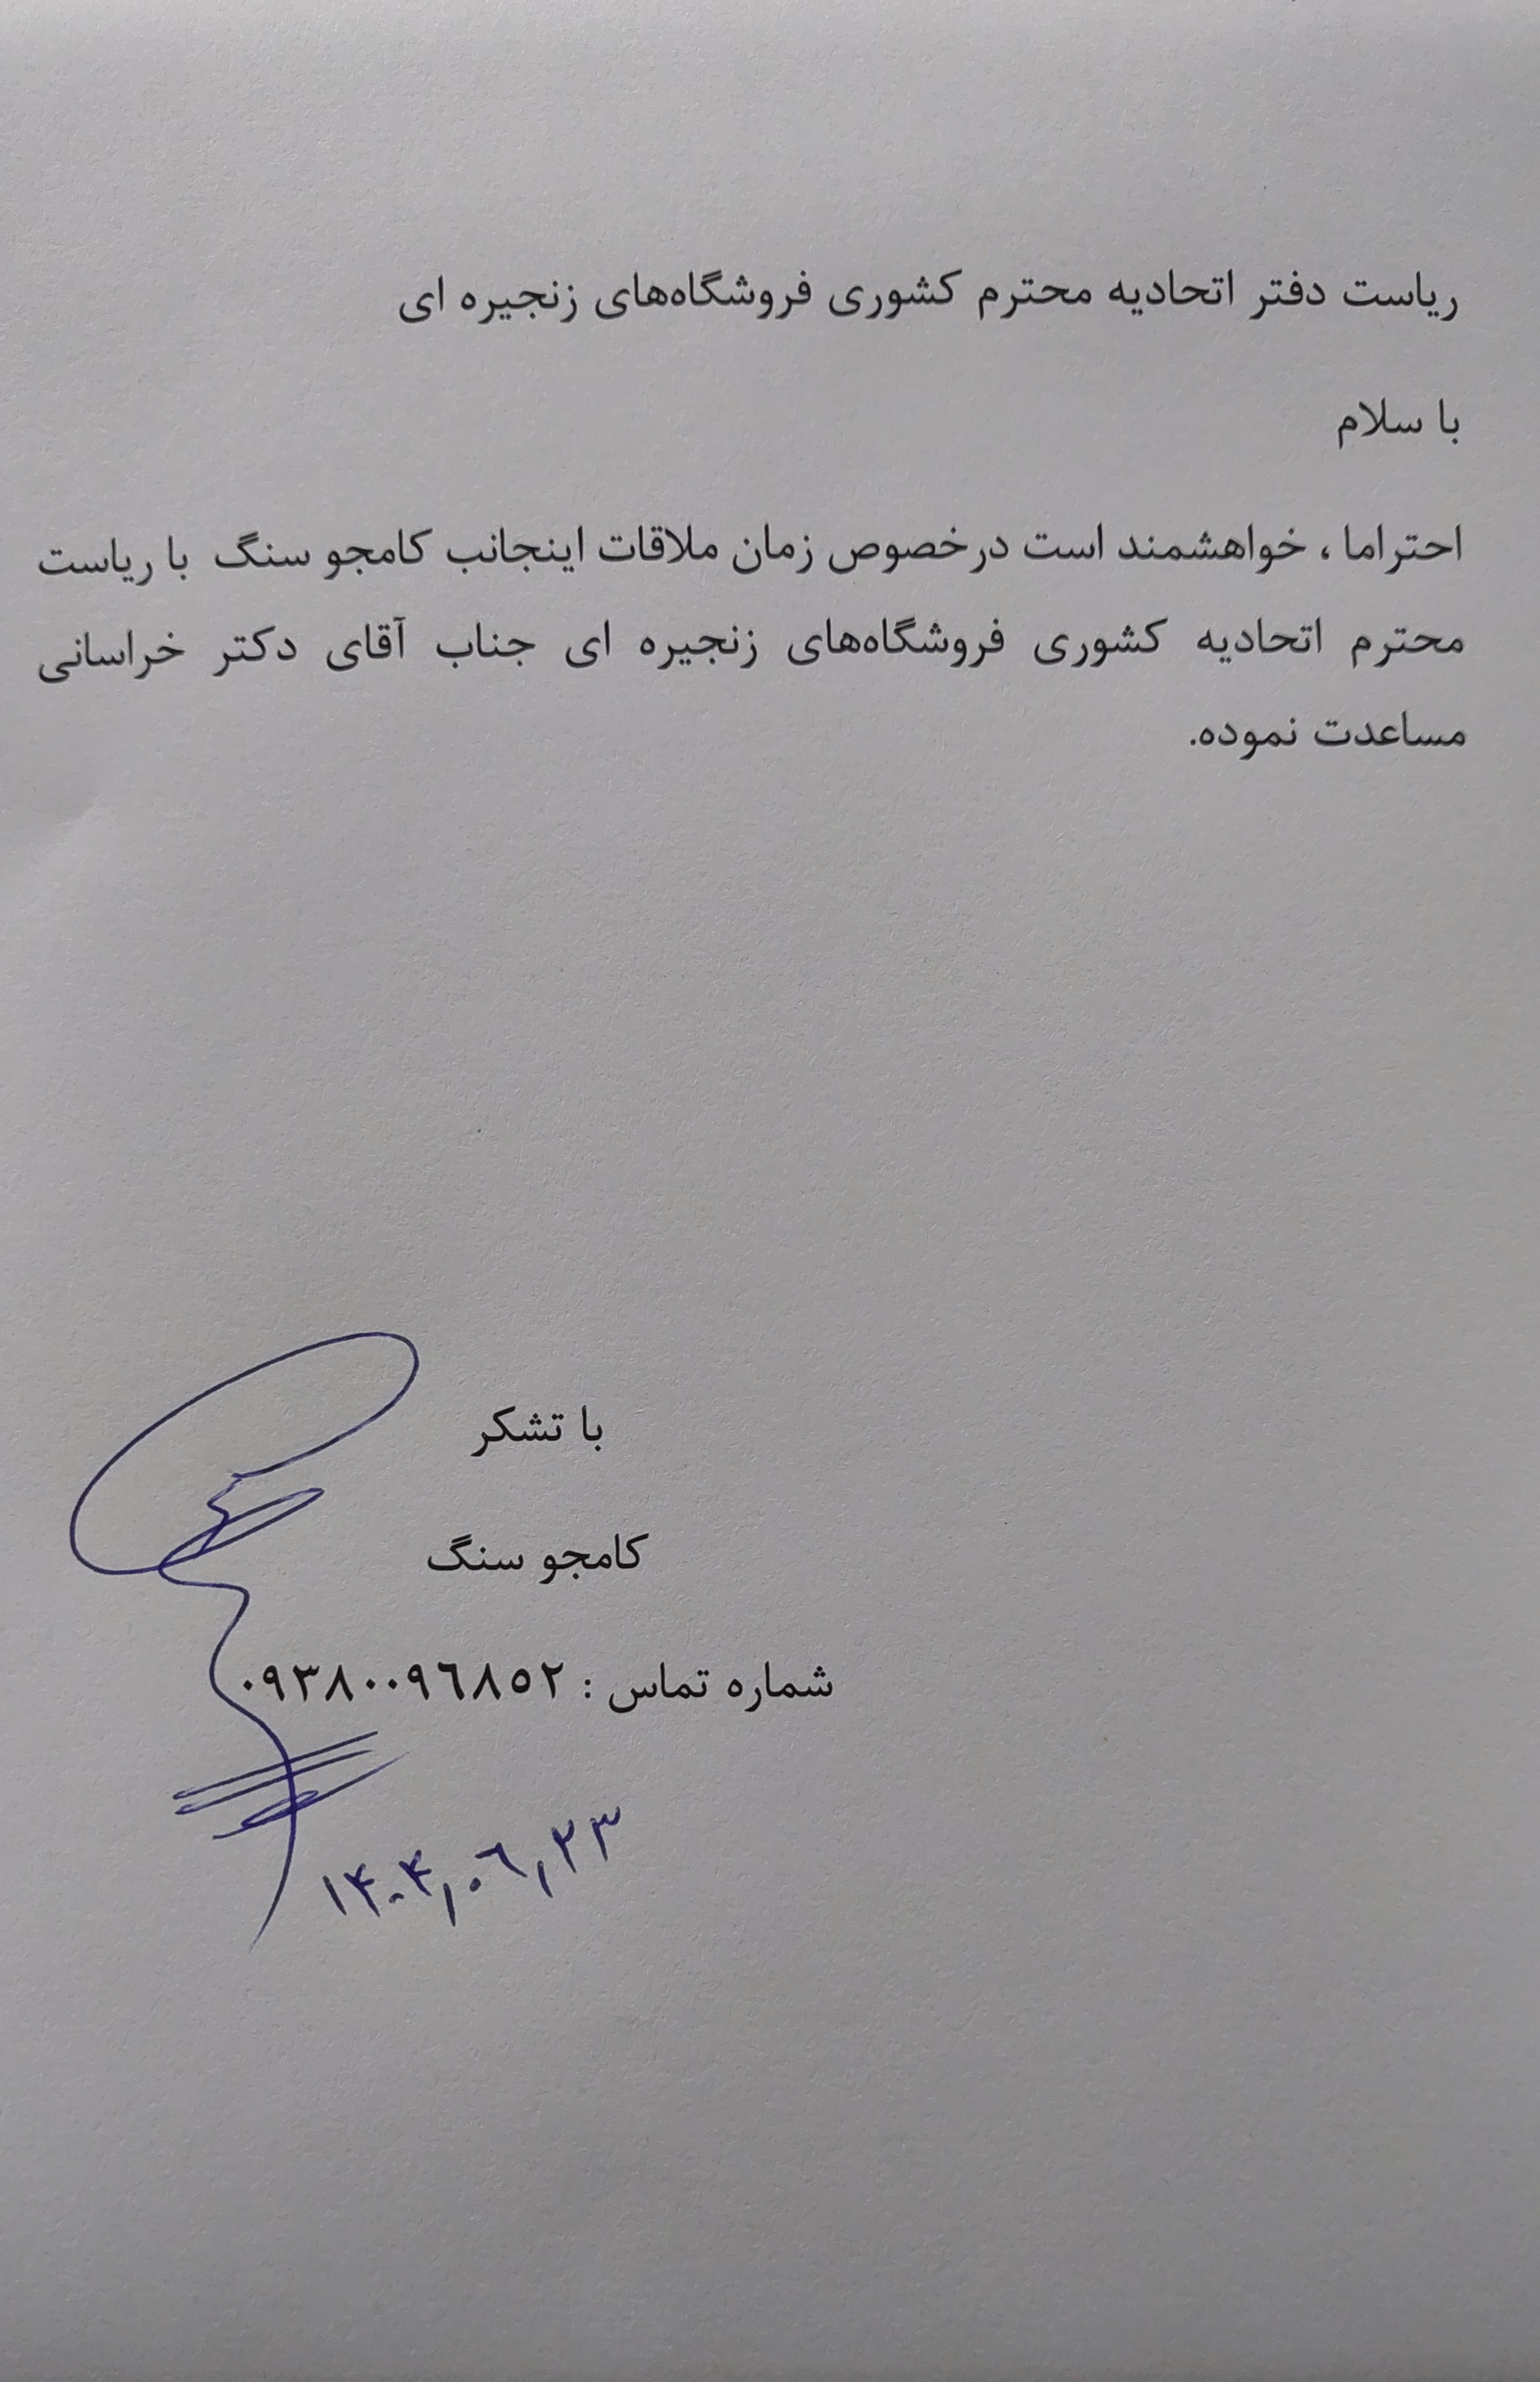 ریاست دفتر اتحادیه محترم کشوری فروشگاه‌های زنجیره ای
با سلام
احتراما ، خواهشمند است درخصوص زمان ملاقات اینجانب کامجو سنگ با ریاست
محترم اتحادیه کشوری فروشگاه‌های زنجیره ای جناب آقای دکتر خراسانی
مساعدت نموده.
با تشکر
کامجو سنگ
شماره تماس : ۰۹۳۸۰۰۹۶۸۵۲
۱۴۰۴,۰۶,۲۳